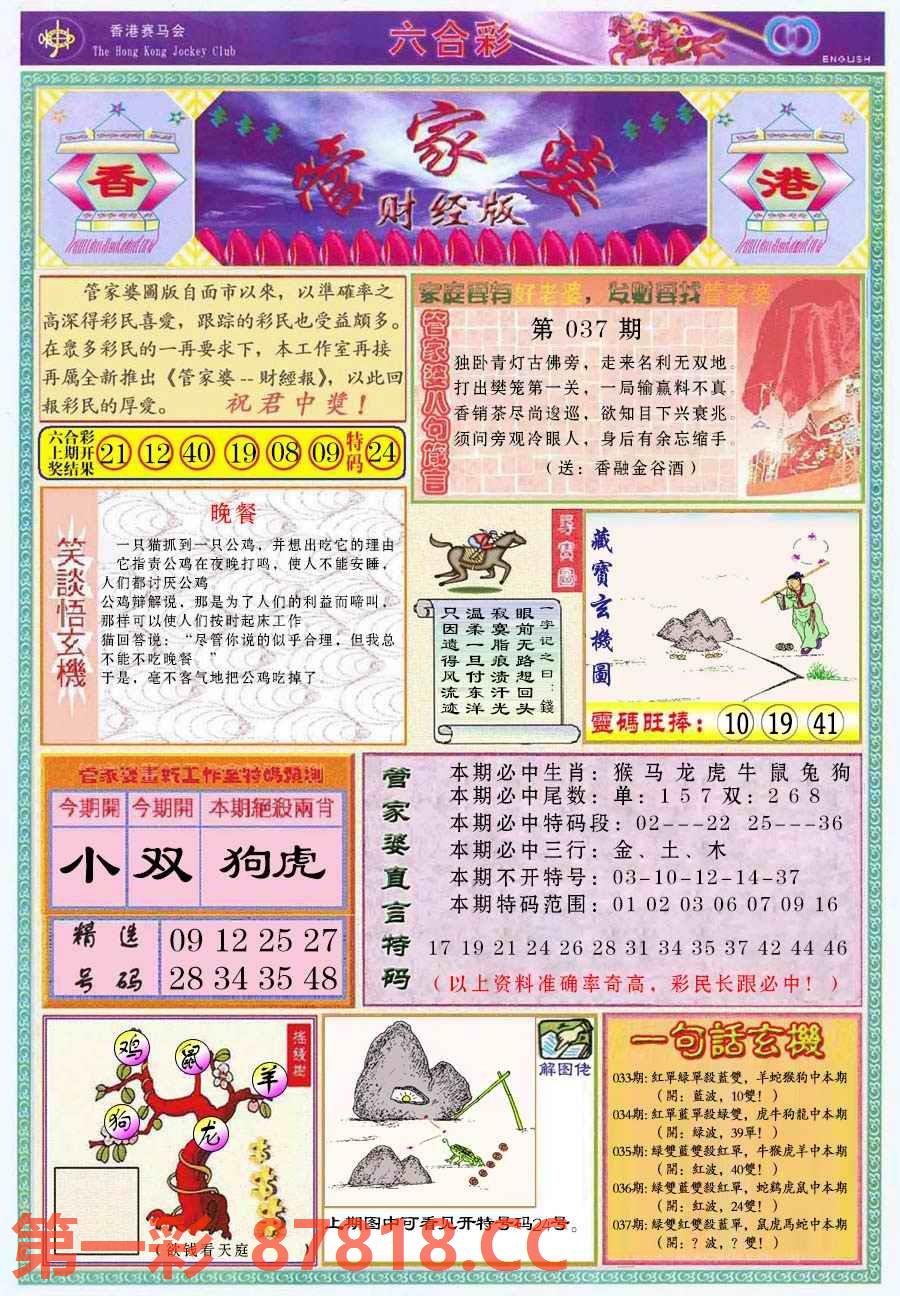 香港赛马会
The Hong Kong Jockey Club
六合彩
ENGLISH
香
管家婆
财经版
港
管家婆圖版自面市以來，以準確率之
高深得彩民喜愛，跟踪的彩民也受益頗多。
在衆多彩民的一再要求下，本工作室再接
再厲全新推出《管家婆--財經報》，以此回
報彩民的厚愛。 祝君中獎！
六合彩
上期开
奖结果
21 12 40 19 08 09 特码 24
好老婆，
管家婆
管家婆八句箴言
第 037 期
独卧青灯古佛旁，走来名利无双地。
打出樊笼第一关，一局输赢料不真。
香销茶尽尚逡巡，欲知目下兴衰兆。
须问旁观冷眼人，身后有余忘缩手。
（送：香融金谷酒）
笑談悟玄機
晚餐
一只猫抓到一只公鸡，并想出吃它的理由
它指责公鸡在夜晚打鸣，使人不能安睡，
人们都讨厌公鸡
公鸡辩解说，那是为了人们的利益而啼叫，
那样可以使人们按时起床工作
猫回答说：“尽管你说的似乎合理，但我总
不能不吃晚餐 ”
于是，毫不客气地把公鸡吃掉了
尋寶圖
一字记之曰：錢
眼前无路想回头
寂寞脂痕渍汗光
温柔一旦付东洋
只因遗得风流迹
藏寶玄機圖
靈碼旺捧： 10 19 41
今期開 今期開 本期絕殺兩肖
小 双 狗虎
精选
号码
09 12 25 27
28 34 35 48
管家婆直言特码
本期必中生肖：猴 马 龙 虎 牛 鼠 兔 狗
本期必中尾数：单：1 5 7 双：2 6 8
本期必中特码段：02---22 25---36
本期必中三行：金、土、木
本期不开特号：03-10-12-14-37
本期特码范围：01 02 03 06 07 09 16
17 19 21 24 26 28 31 34 35 37 42 44 46
（以上资料准确率奇高，彩民长跟必中！）
摇錢樹
鸡
鼠
羊
狗
龙
（欲钱看天庭 ）
解图佬
上期图中可看见开特号码24号。
一句話玄機
033期: 紅單绿單殺藍雙，羊蛇猴狗中本期
（開：藍波，10雙！）
034期: 紅單藍單殺綠雙，虎牛狗龍中本期
（開：绿波，39單！）
035期: 绿雙藍雙殺紅單，牛猴虎羊中本期
（開：紅波，40雙！）
036期: 绿雙藍雙殺紅單，蛇鷄虎鼠中本期
（開：紅波，24雙！）
037期: 绿雙紅雙殺藍單，鼠虎馬蛇中本期
（開：？波，？雙！）
第一彩 87818.CC